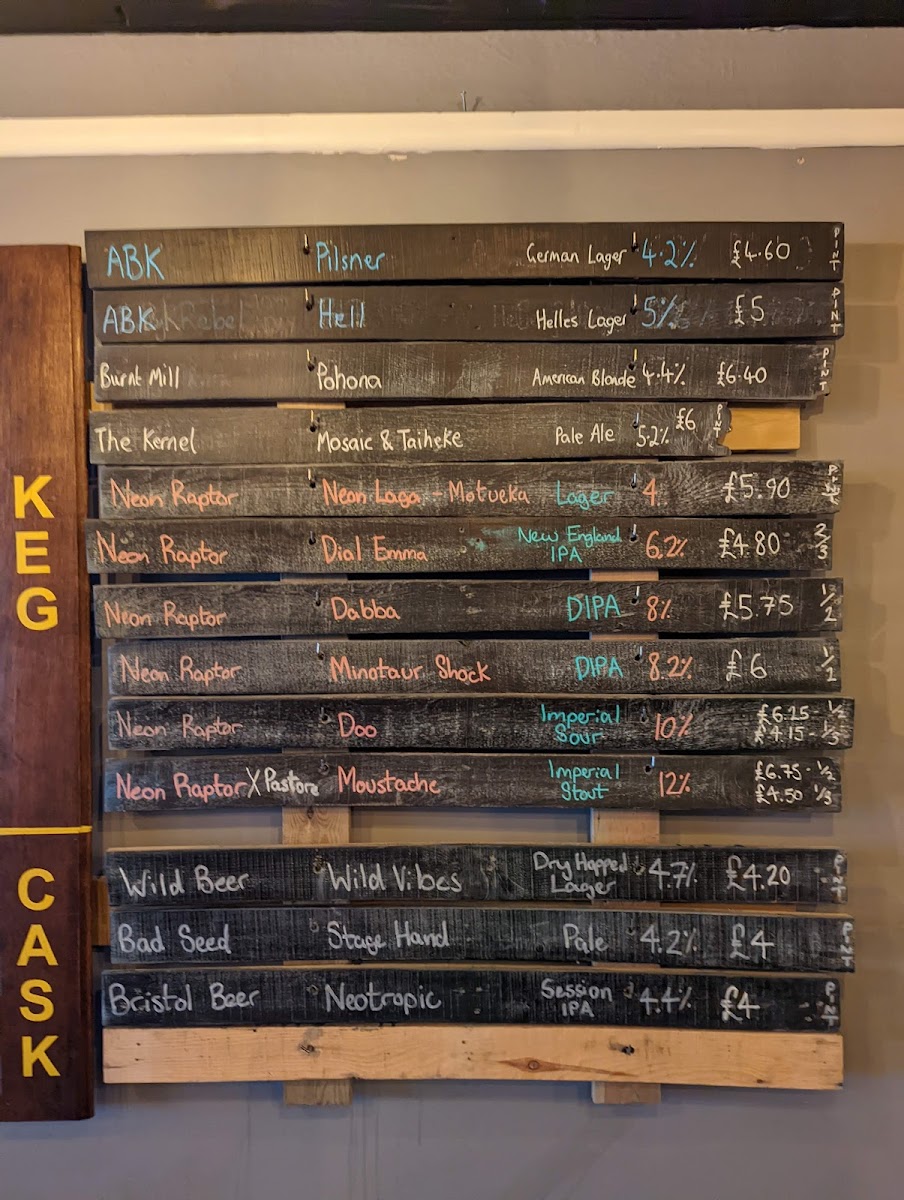 KEG
ABK Pilsner German Lager 4.2% £4.60 PINT
ABK Hell Helles Lager 5% £5 PINT
Burnt Mill Pohona American Blonde 4.4% £6.40 PINT
The Kernel Mosaic & Taiheke Pale Ale 5.2% £6 PINT
Neon Raptor Neon Laga - Motueka Lager 4 £5.90 PINT
Neon Raptor Dial Emma New England IPA 6.2% £4.80 2/3
Neon Raptor Dabba DIPA 8% £5.75 1/2
Neon Raptor Minotaur Shock DIPA 8.2% £6 1/2
Neon Raptor Doo Imperial Sour 10% £6.25 - 1/2 £4.15 - 1/3
Neon Raptor X Pastore Moustache Imperial Stout 12% £6.75 - 1/2 £4.50 1/3
CASK
Wild Beer Wild Vibes Dry Hopped Lager 4.7% £4.20 PINT
Bad Seed Stage Hand Pale 4.2% £4 PINT
Bristol Beer Neotropic Session IPA 4.4% £4 PINT